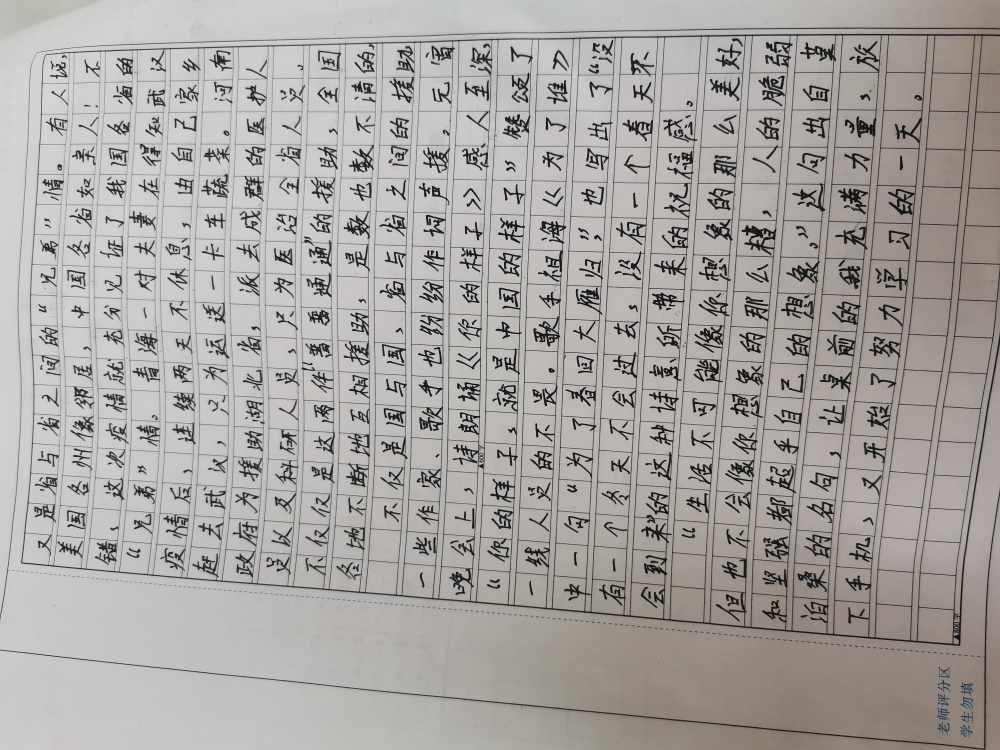 又是省与省之间的“兄弟”情。有人说，
美国各州像邻居，中国各省如亲人！不
错，这次疫情就充分见证了我国各省的
“兄弟”情。青海一对夫妻在得知武汉
疫情后，连续两天不休息，由自己家乡
赶去武汉，只为运送一卡车蔬菜。河南
政府为援助湖北省，派去成群的医护人
员以及科研人员，只为医治全省人员。
不仅仅是这两件“普普通通”的援助，全国
各地不断地互相援助，是数也数不清的。
不仅是国与国、省与省之间的援助
一些作家、歌手也纷纷作词声援。元宵
晚会上，诗朗诵《你的样子》感人至深，
“你的样子，就是中国的样子”赞颂了
一线人员的不畏。歌手祖海《为了谁》
中一句“为了春回大雁归”，也写出了“没
有一个冬天不会过去，没有一个春天不
会到来”的这种诗意所带来的祝福感。
“生活不可能像你想象的那么美好，
但也不会像你想象的那么糟，人的脆弱
和坚强都起乎自己的想象。”这句出自莫
泊桑的名句，让桌前的我充满力量，放
下手机，又开始了努力学习的一天。
▲600字
▲800字
老师评分区
学生勿填